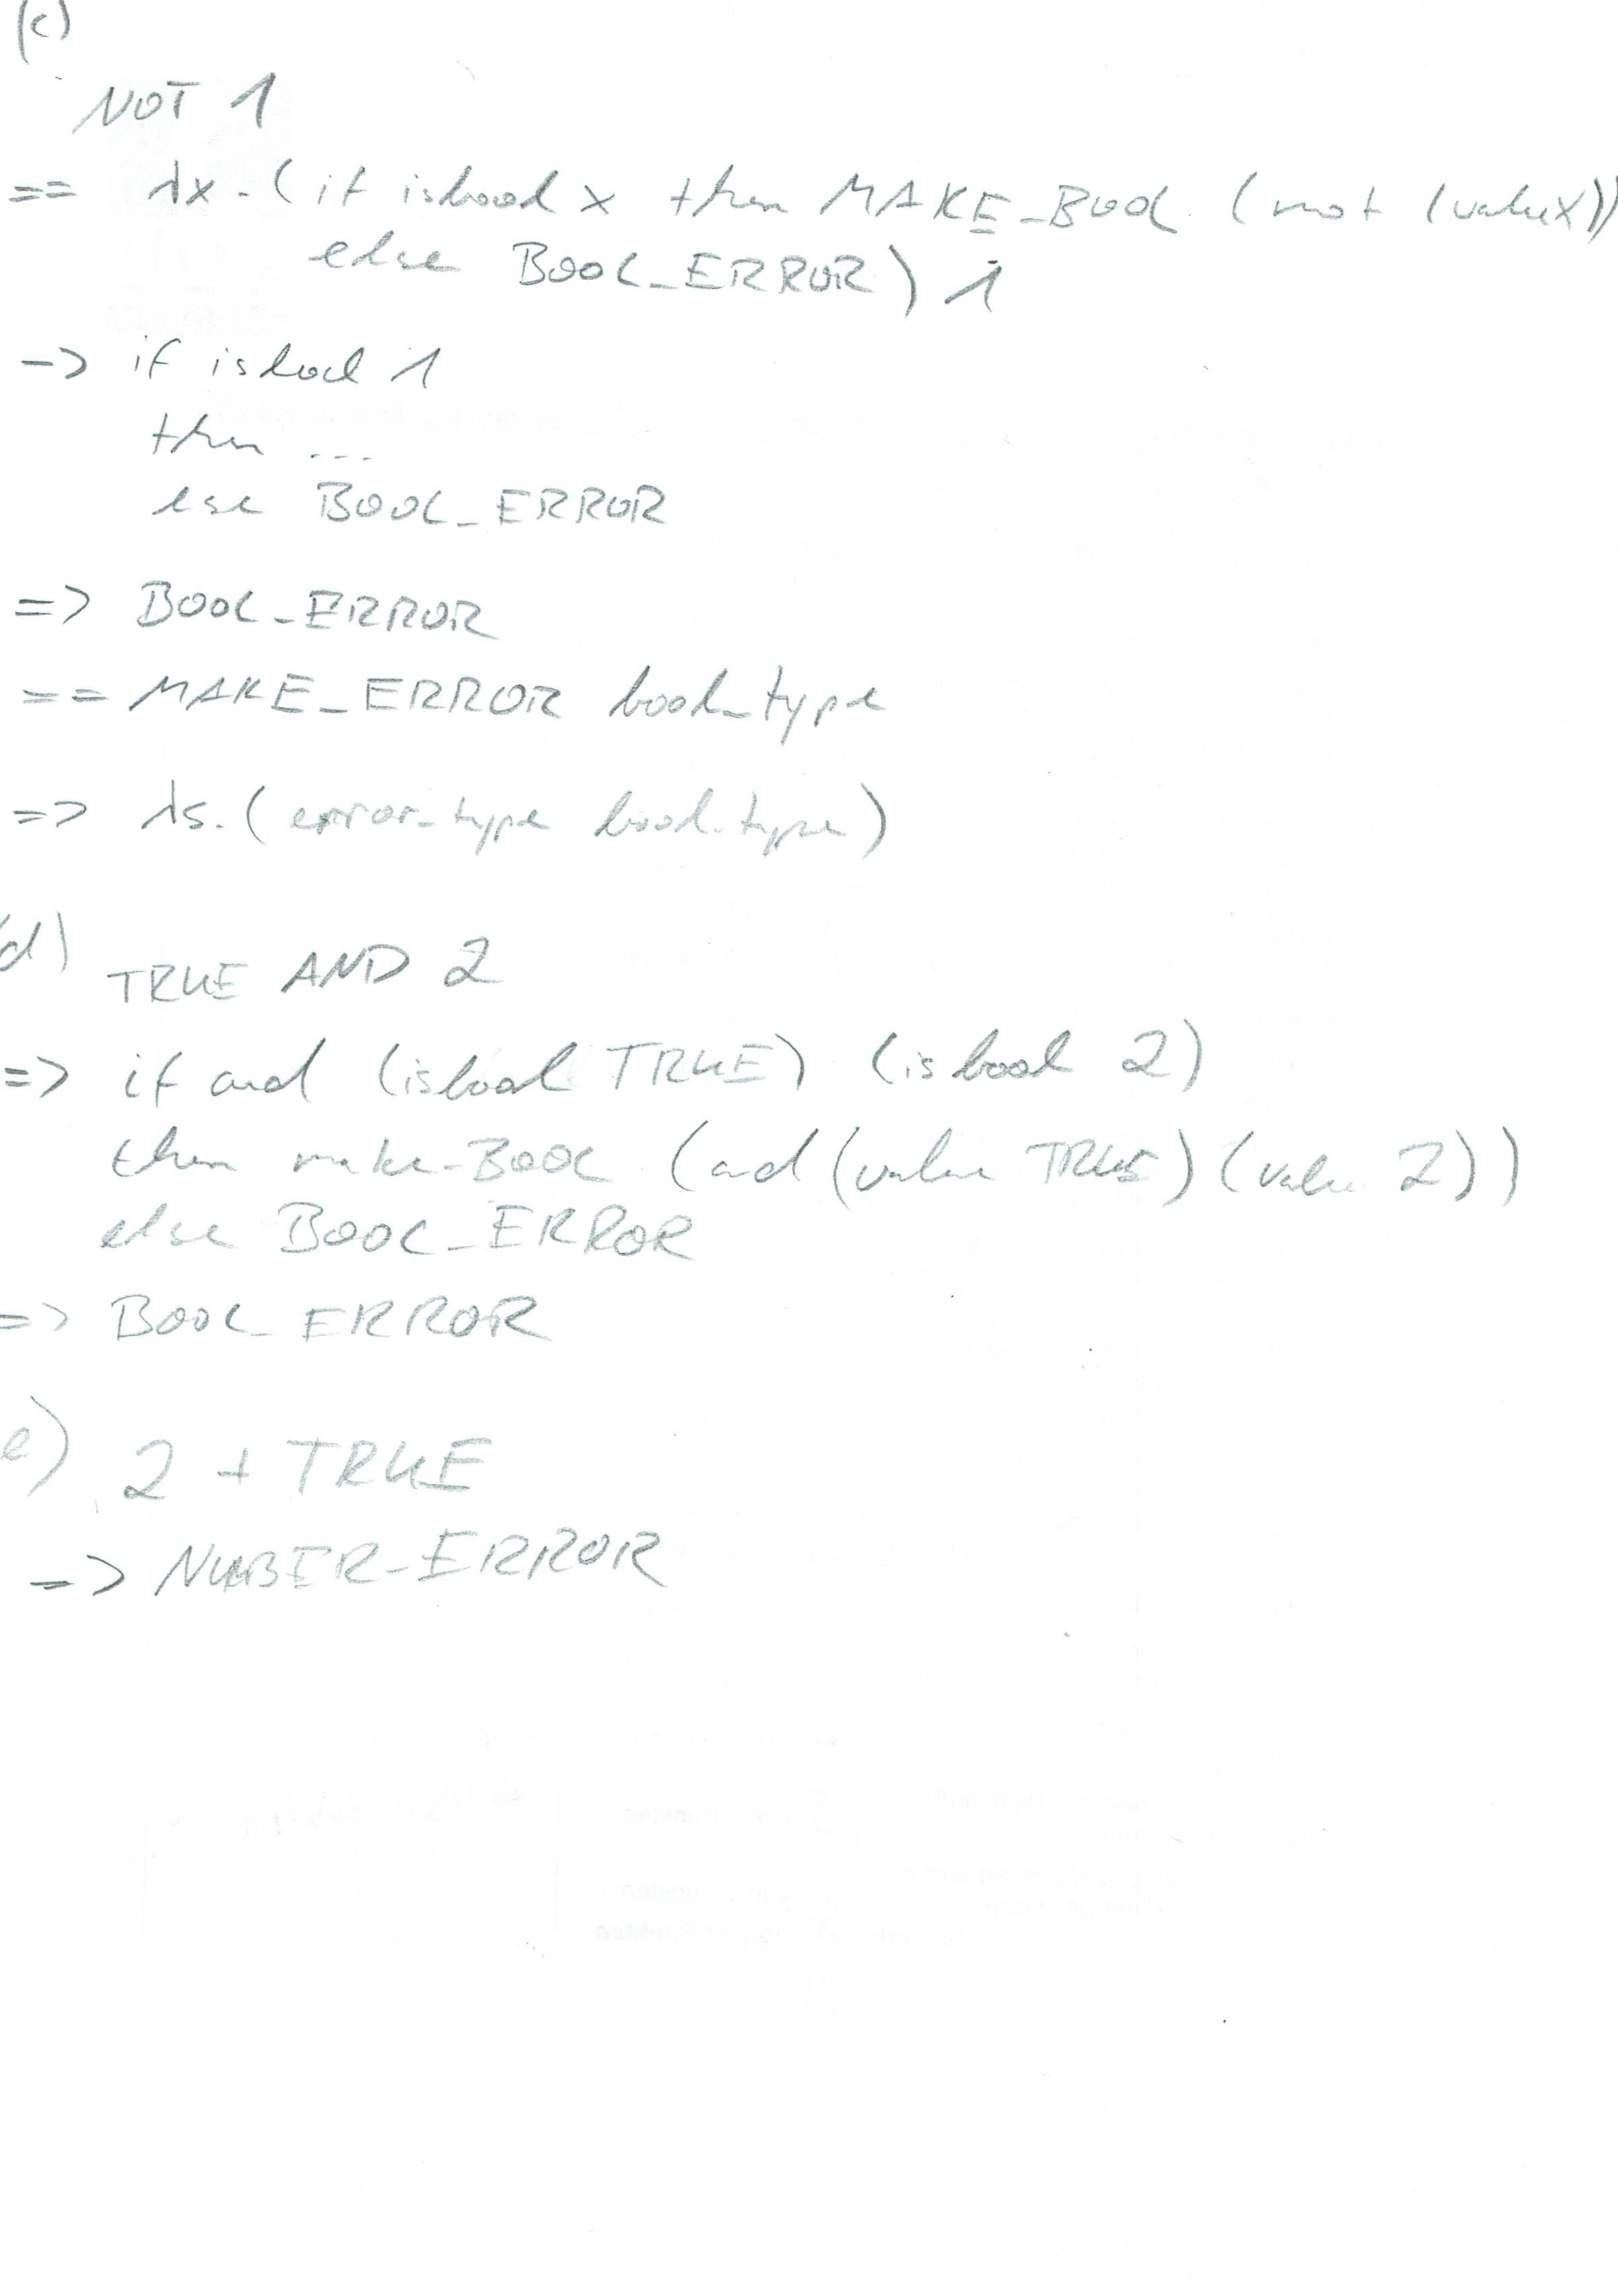 (c)
NOT 1
== λx.(if isbool x then MAKE_BOOL (not (value x))
else BOOL_ERROR) 1
-> if isbool 1
then ...
else BOOL_ERROR
=> BOOL_ERROR
== MAKE_ERROR bool_type
=> λs.(error_type bool_type)
d)
TRUE AND 2
=> if and (isbool TRUE) (isbool 2)
then make-BOOL (and (value TRUE) (value 2))
else BOOL_ERROR
=> BOOL_ERROR
e) 2 + TRUE
=> NUMBER-ERROR